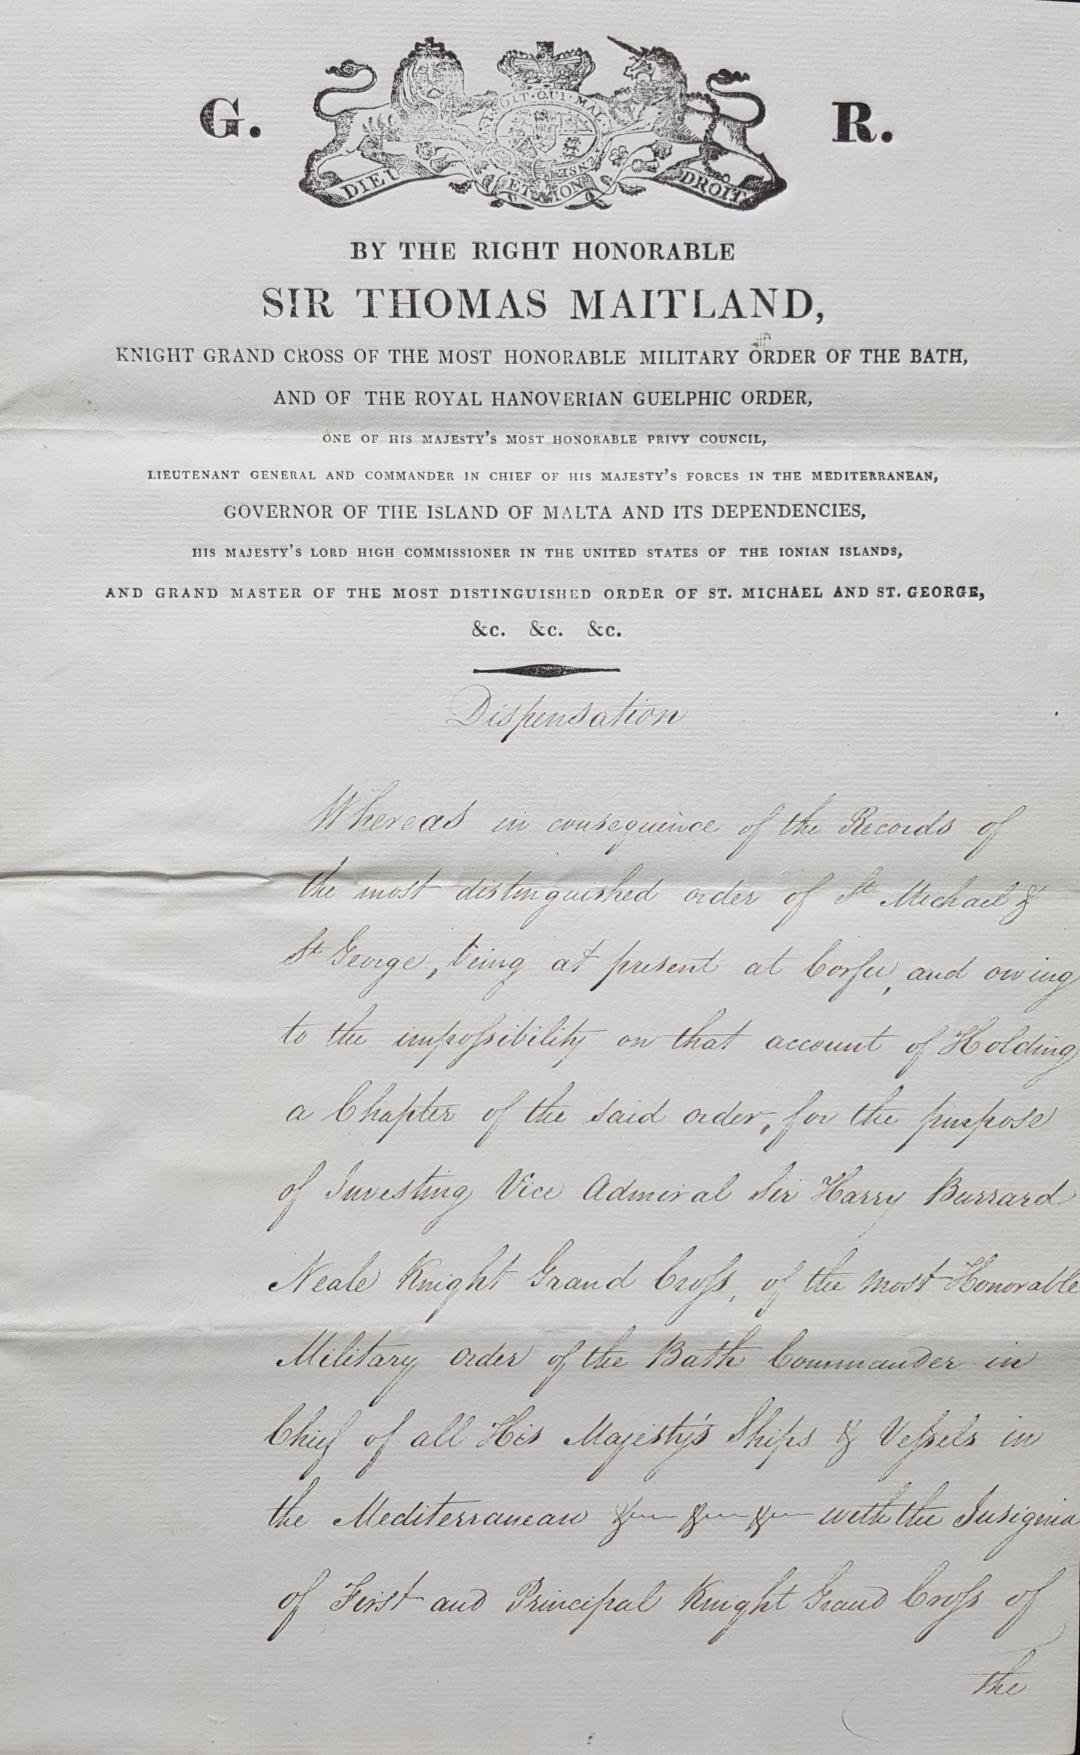 G. R.
SOIT·QUI·MAL
DIEU ET MON DROIT
BY THE RIGHT HONORABLE
SIR THOMAS MAITLAND,
KNIGHT GRAND CROSS OF THE MOST HONORABLE MILITARY ORDER OF THE BATH,
AND OF THE ROYAL HANOVERIAN GUELPHIC ORDER,
ONE OF HIS MAJESTY'S MOST HONORABLE PRIVY COUNCIL,
LIEUTENANT GENERAL AND COMMANDER IN CHIEF OF HIS MAJESTY'S FORCES IN THE MEDITERRANEAN,
GOVERNOR OF THE ISLAND OF MALTA AND ITS DEPENDENCIES,
HIS MAJESTY'S LORD HIGH COMMISSIONER IN THE UNITED STATES OF THE IONIAN ISLANDS,
AND GRAND MASTER OF THE MOST DISTINGUISHED ORDER OF ST. MICHAEL AND ST. GEORGE,
&c. &c. &c.
Dispensation
Whereas in consequence of the Records of
the most distinguished order of St Michael &
St George, being at present at Corfu, and owing
to the impossibility on that account of Holding
a Chapter of the said order, for the purpose
of Investing Vice Admiral Sir Harry Burrard
Neale Knight Grand Cross, of the most Honorable
Military order of the Bath Commander in
Chief of all His Majesty's Ships & Vessels in
the Mediterranean &c &c &c with the Insignia
of First and Principal Knight Grand Cross of
the